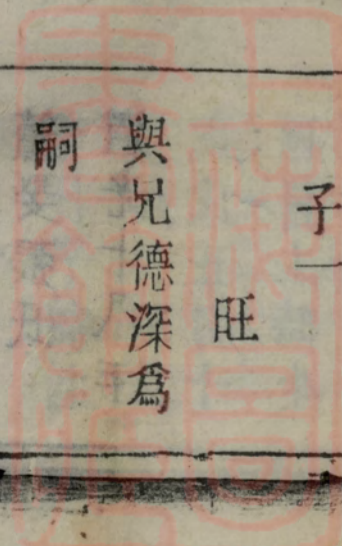 子一
旺
與兄德深爲
嗣